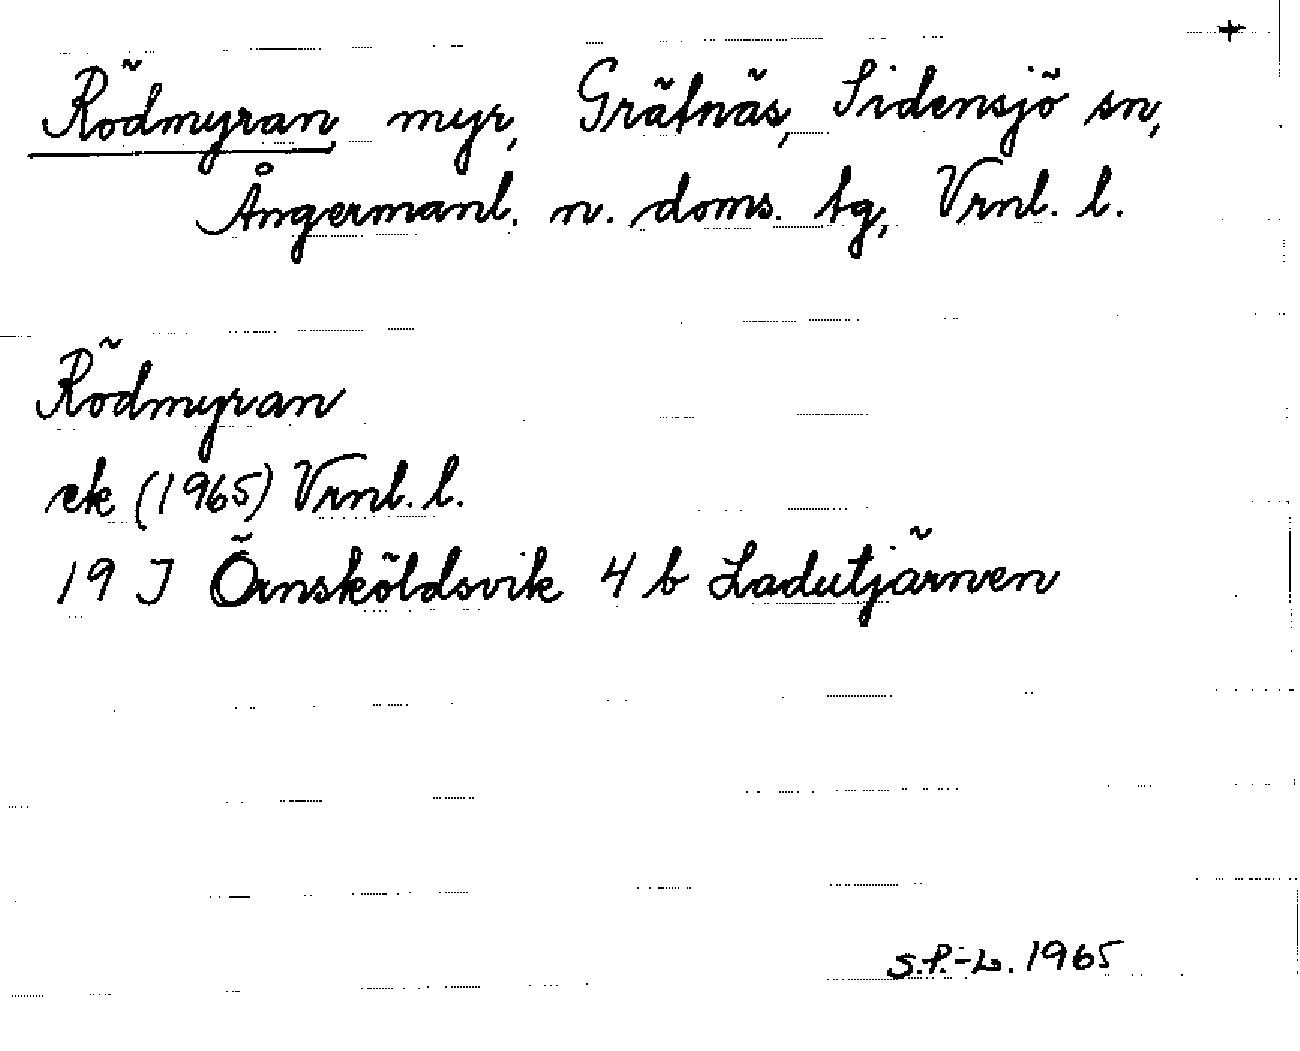 +
Rödmyran myr, Grätnäs, Sidensjö sn,
Ångermanl. n. doms. tg, Vrnl. l.
Rödmyran
ek (1965) Vrnl. l.
19 J Örnsköldsvik 4 b Ladutjärnen
S.P.-L. 1965